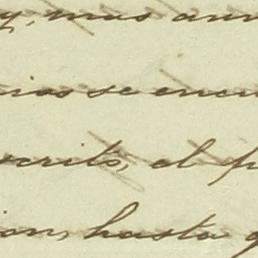 y, mas aun
nios se encu
scrito, el p
ion, hasta q